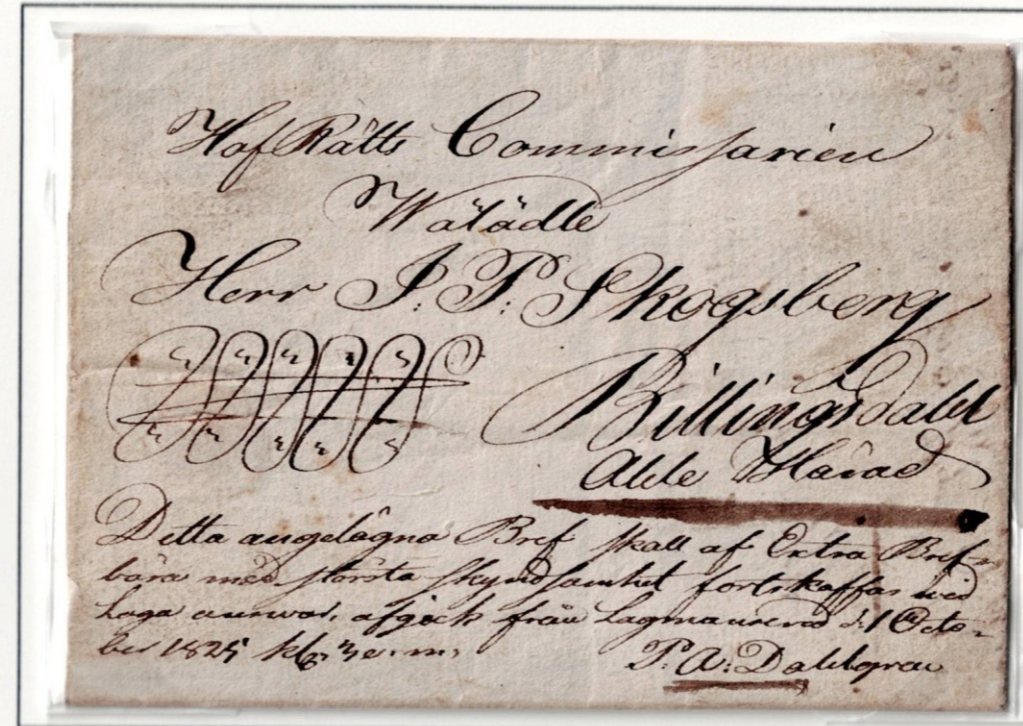 Hof Rätts Commissarien
Wälädle
Herr J. P. Skogsberg
Billingsdahl
Ahle Härad
Detta angelägna Bref skall af Extra Bref-
bära med största skyndsamhet fortskaffas wid
laga answar, afgeck från Lagmansered d. 1 Octo-
ber 1825 kl. 3 e. m.
P. A. Dahlgren